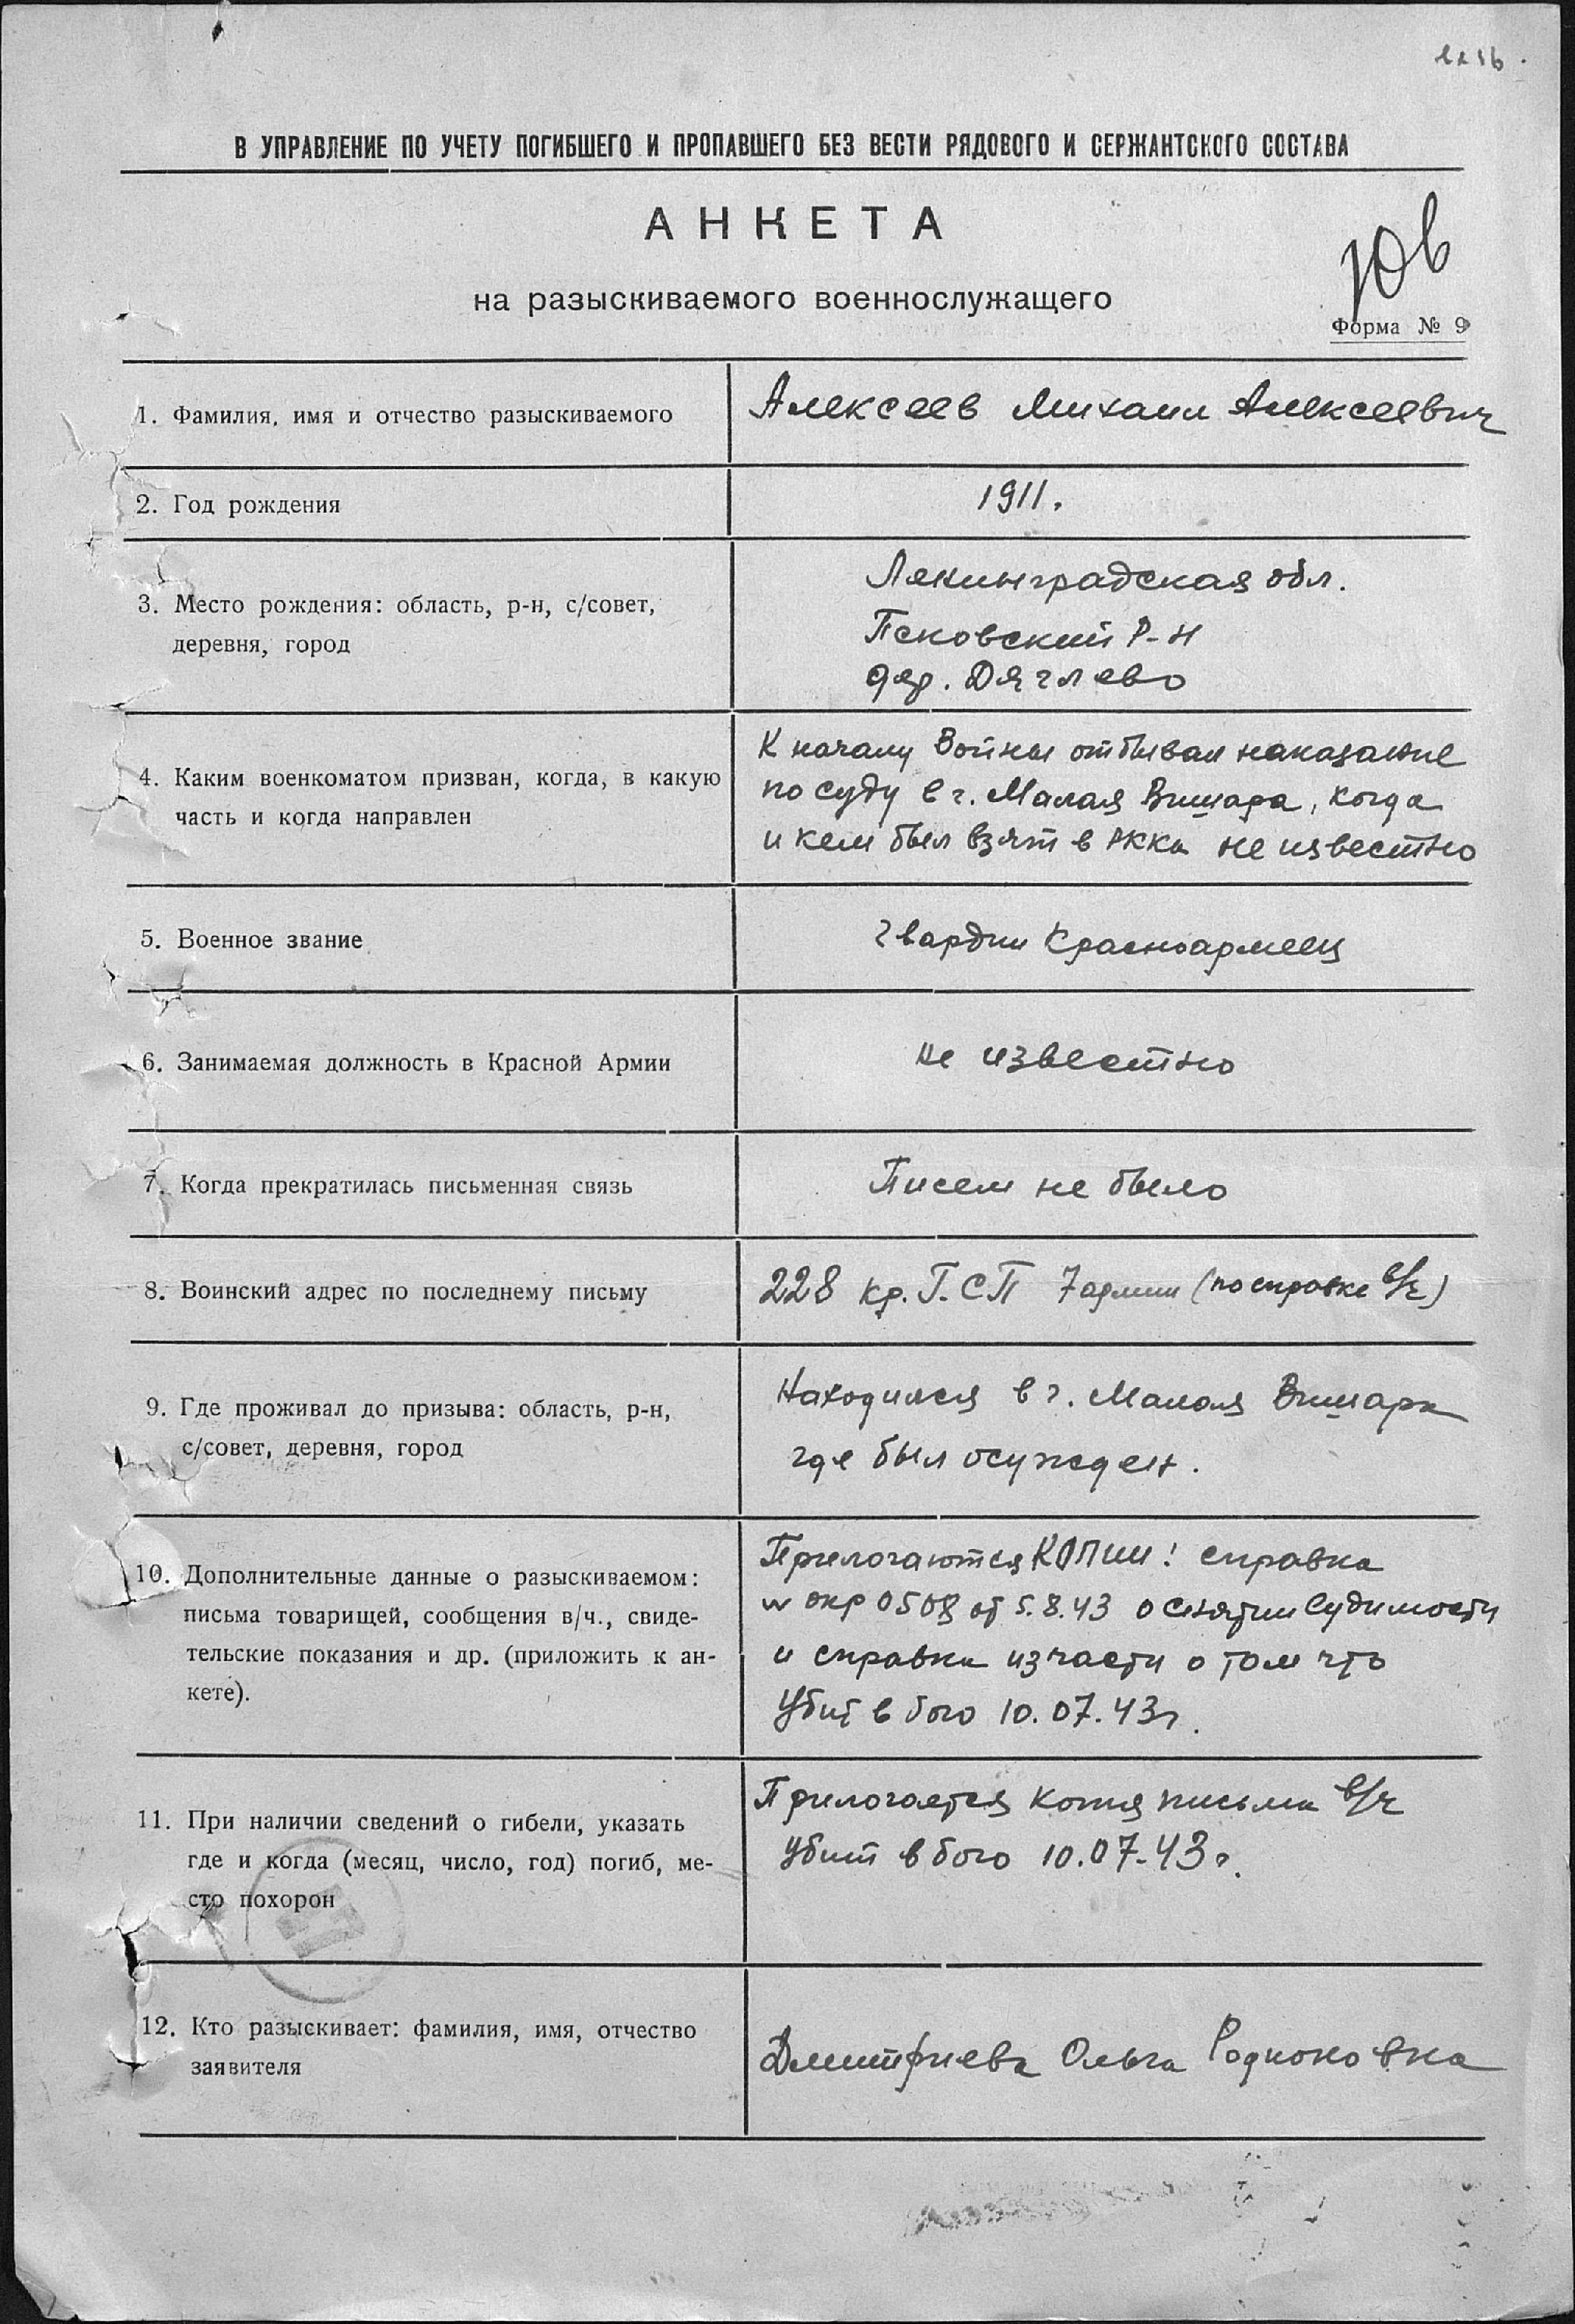 В УПРАВЛЕНИЕ ПО УЧЕТУ ПОГИБШЕГО И ПРОПАВШЕГО БЕЗ ВЕСТИ РЯДОВОГО И СЕРЖАНТСКОГО СОСТАВА
АНКЕТА
на разыскиваемого военнослужащего
Форма № 9
1. Фамилия, имя и отчество разыскиваемого
Алексеев Михаил Алексеевич
2. Год рождения
1911.
3. Место рождения: область, р-н, с/совет,
деревня, город
Ленинградская обл.
Псковский Р-н
дер. Дяглево
4. Каким военкоматом призван, когда, в какую
часть и когда направлен
К началу Войны отбывал наказание
по суду в г. Малая Вишара, когда
и кем был взят в РККа не известно
5. Военное звание
гвардии Красноармеец
6. Занимаемая должность в Красной Армии
не известно
7. Когда прекратилась письменная связь
Писем не было
8. Воинский адрес по последнему письму
228 кр. Г. С П 7 армии (по справке в/ч)
9. Где проживал до призыва: область, р-н,
с/совет, деревня, город
Находился в г. Малая Вишара
где был осужден.
10. Дополнительные данные о разыскиваемом:
письма товарищей, сообщения в/ч., свиде-
тельские показания и др. (приложить к ан-
кете).
Прилогаются КОПИИ: справка
0508 от 5.8.43 о снятии Судимости
и справка из части о том что
Убит в бою 10.07.43г.
11. При наличии сведений о гибели, указать
где и когда (месяц, число, год) погиб, ме-
сто похорон
Прилогается копия письма в/ч
Убит в бою 10.07.43г.
12. Кто разыскивает: фамилия, имя, отчество
заявителя
Дмитриева Ольга Родионовна